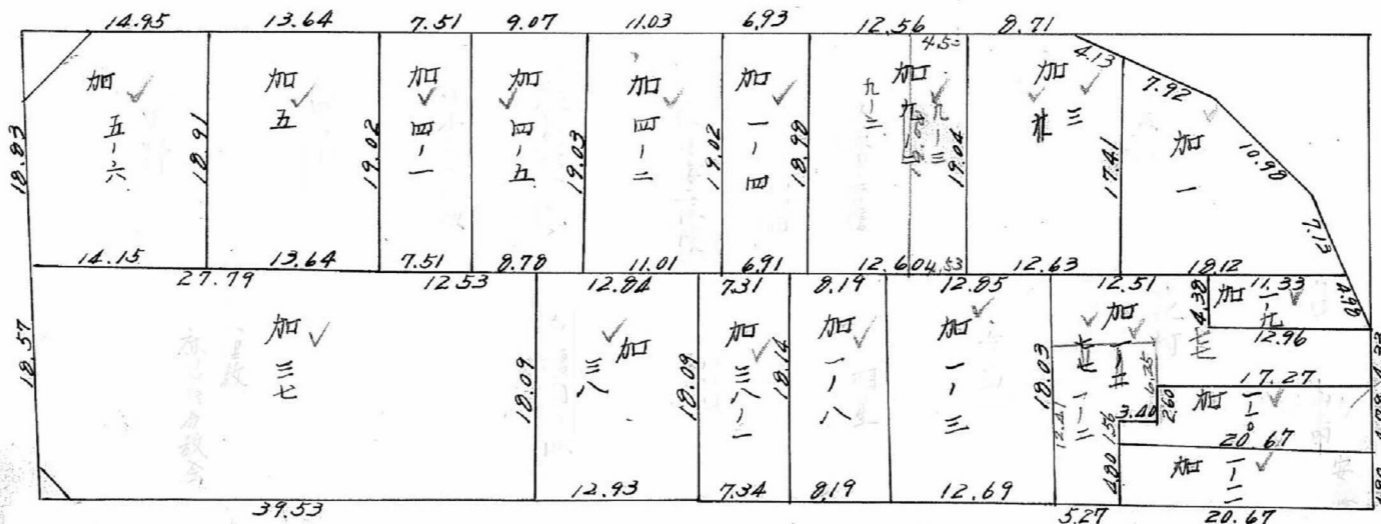 14.95 13.64 7.51 9.07 11.03 6.93 12.56 8.71
4.5
4.13
7.92
10.98
7.13
4.98
18.83
加 五-六
18.91
加 五
19.02
加 四-一
加 四-五
19.03
加 四-二
19.02
加 一-四
18.98
九-二
加 九
九-三
19.04
加 三
17.41
加 一
14.15 13.64 7.51 8.78 11.01 6.91 12.60 4.53 12.63 18.12
27.79 12.53 12.84 7.31 8.19 12.85 12.51 11.33
18.57
加 三七
18.09
加 三八
18.09
加 三八-一
18.14
加 一-八
加 一-三
18.03
加
一-二
12.41
1.56
4.80
3.40
6.25
2.60
4.38
加 一-九
12.96
4.33
17.27
加 一-一〇
20.67
加 一-一一
39.53 12.93 7.34 8.19 12.69 5.27 20.67